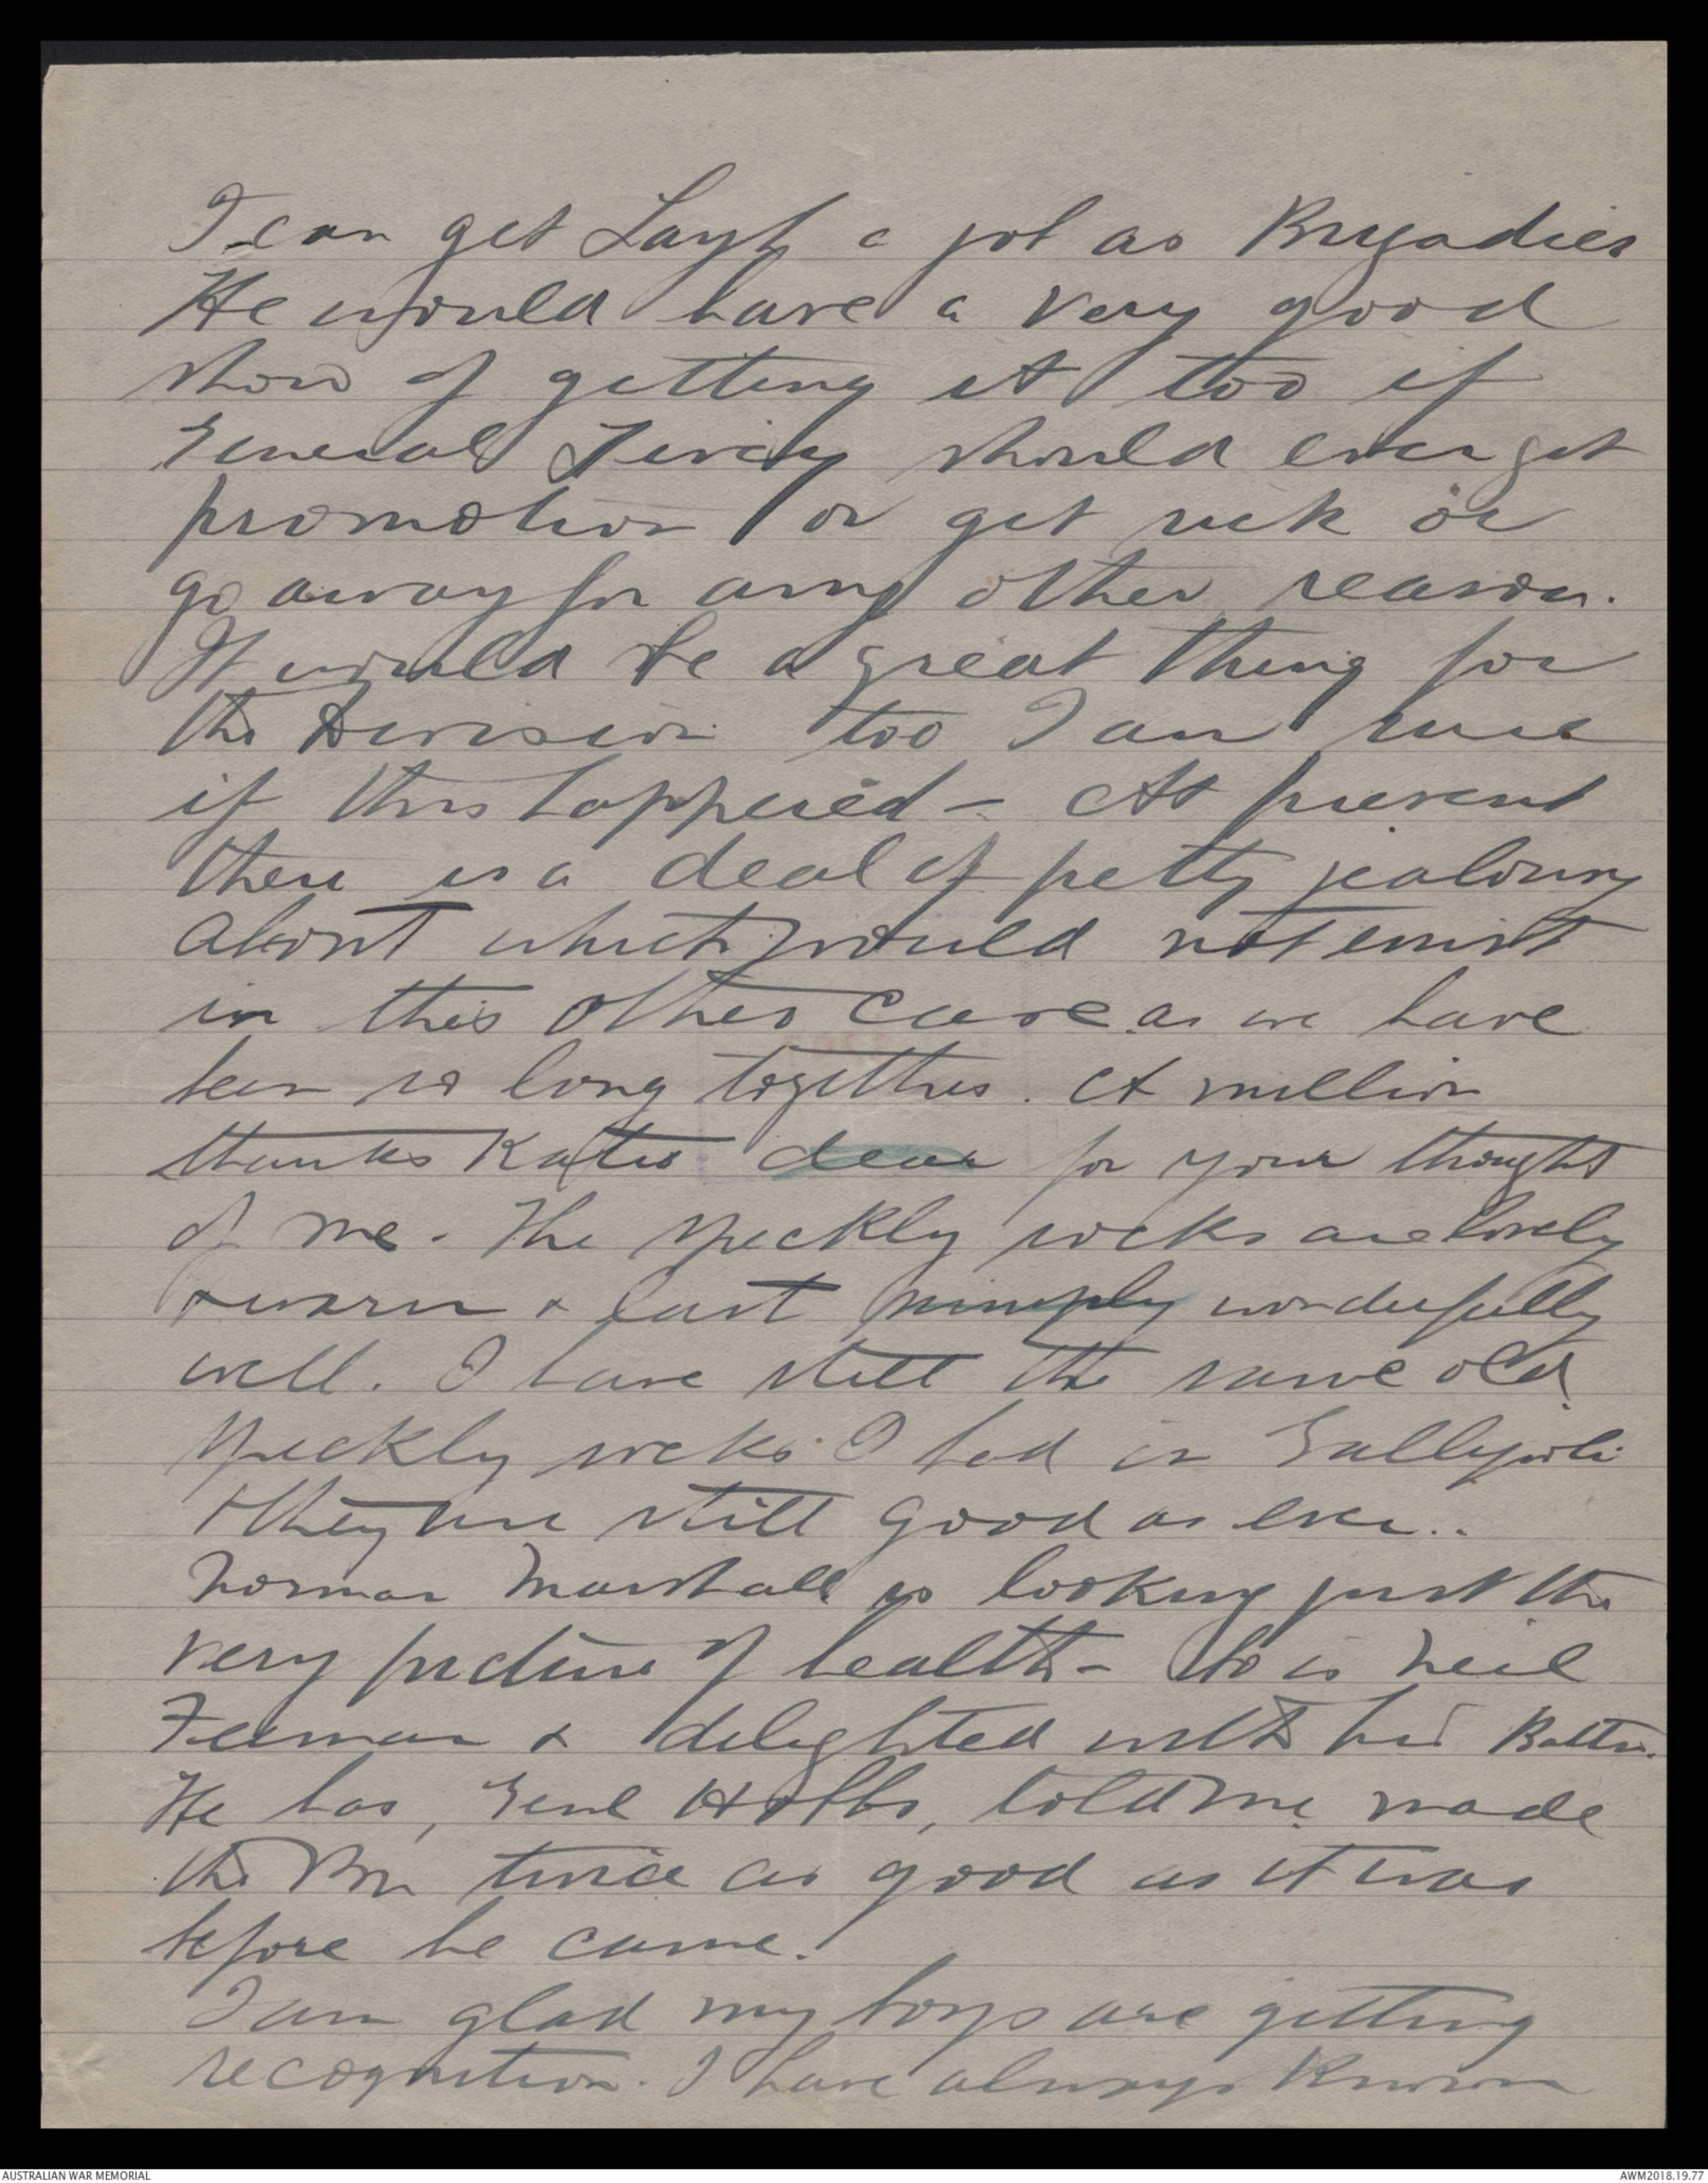 I can get Layh a job as Brigadier
He would have a very good
show of getting it too if
General Tivey should ever get
promotion or get sick or
go away for any other reason.
It would be a great thing for
the Division too I am sure
if this happened - At present
there is a deal of petty jealousy
about which would not exist
in this other case as we have
been so long together. A million
thanks Katie dear for your thought
of me. The speckly socks are lovely
& warm & last simply wonderfully
well. I have still the same old
speckly socks I had in Gallipoli
& they are still good as ever..
Norman Marshall is looking just the
very picture of health - So is Neil
Freeman & delighted with his Battn.
He has, Genl Hobbs, told me made
the Bn twice as good as it was
before he came.
I am glad my boys are getting
recognition. I have always known
AUSTRALIAN WAR MEMORIAL
AWM2018.19.77